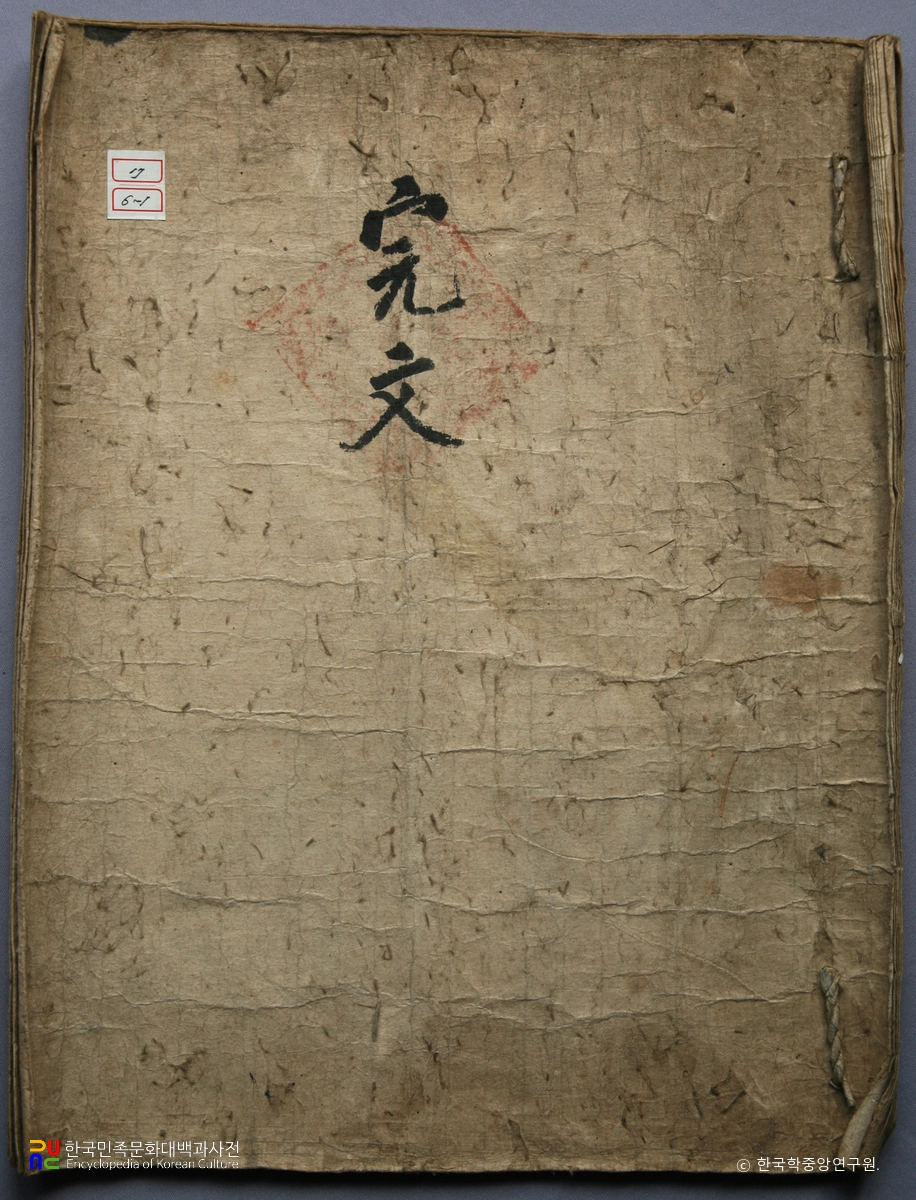 完文
17
6-1
한국민족문화대백과사전
Encyclopedia of Korean Culture
© 한국학중앙연구원.